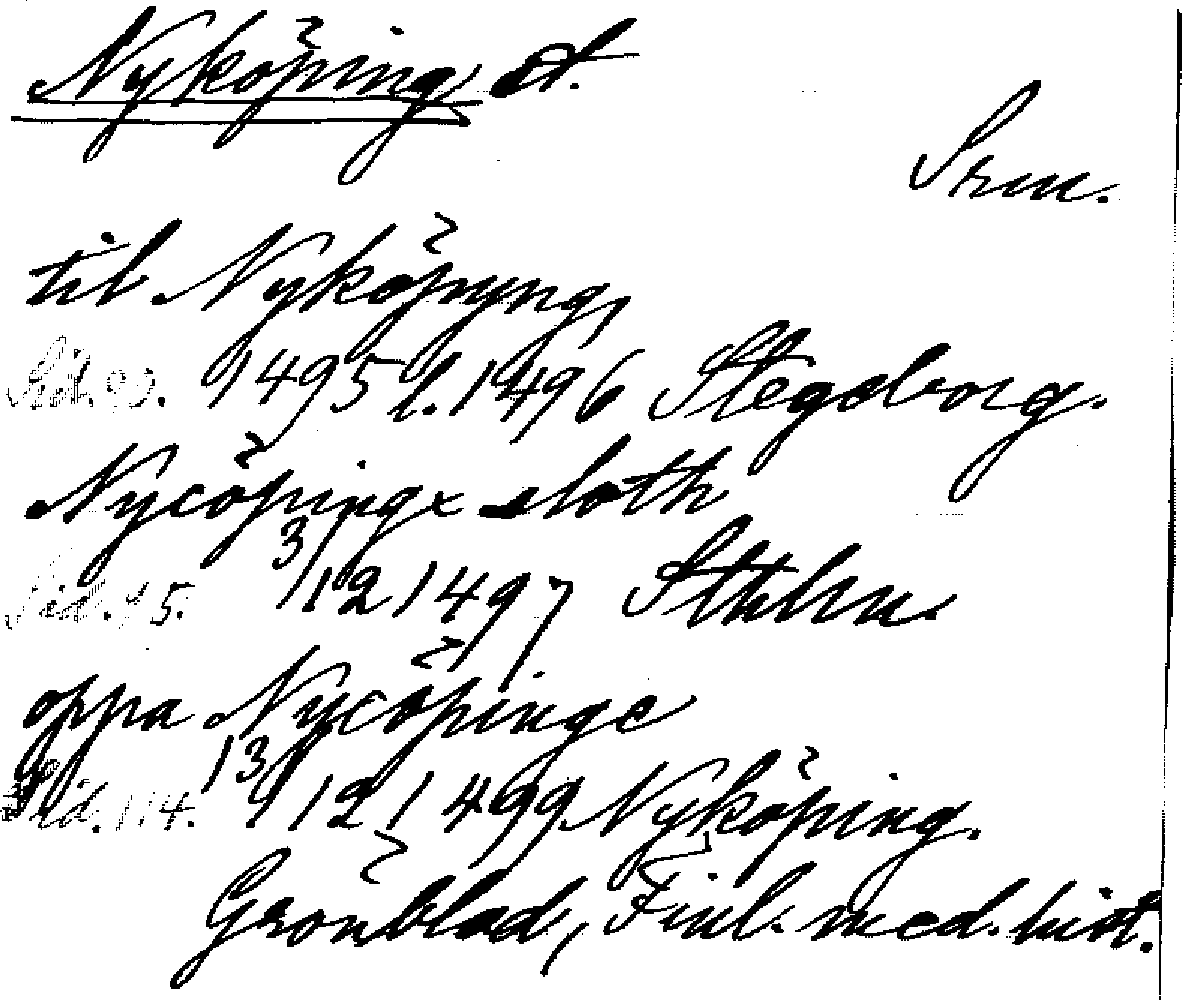 Nyköping st.
Srm.
til Nyköpyng,
Sid. 1495 l. 1496 Stegeborg.
Nycöpingx sloth
Sid. 95. 3/12 1497 Sthlm.
oppa Nycöpinge
Sid. 114. 13/12 1499 Nyköping.
Grönblad, Finl. med. hist.